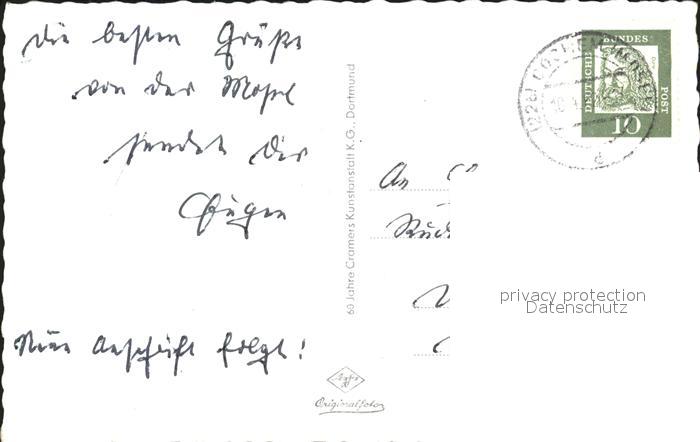 Die besten Grüße
von der Mosel
sendet dir
Eugen
Neue Anschrift folgt!
An
60 Jahre Cramers Kunstanstalt K.G., Dortmund
Agfa
Originalfoto
DEUTSCHE
BUNDES
POST
10
(22b) COCHEM (MOSEL)
d
privacy protection
Datenschutz